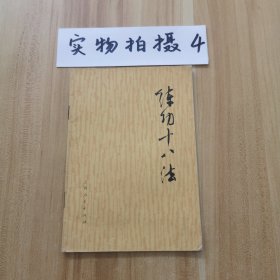 实物拍摄4
练功十八法